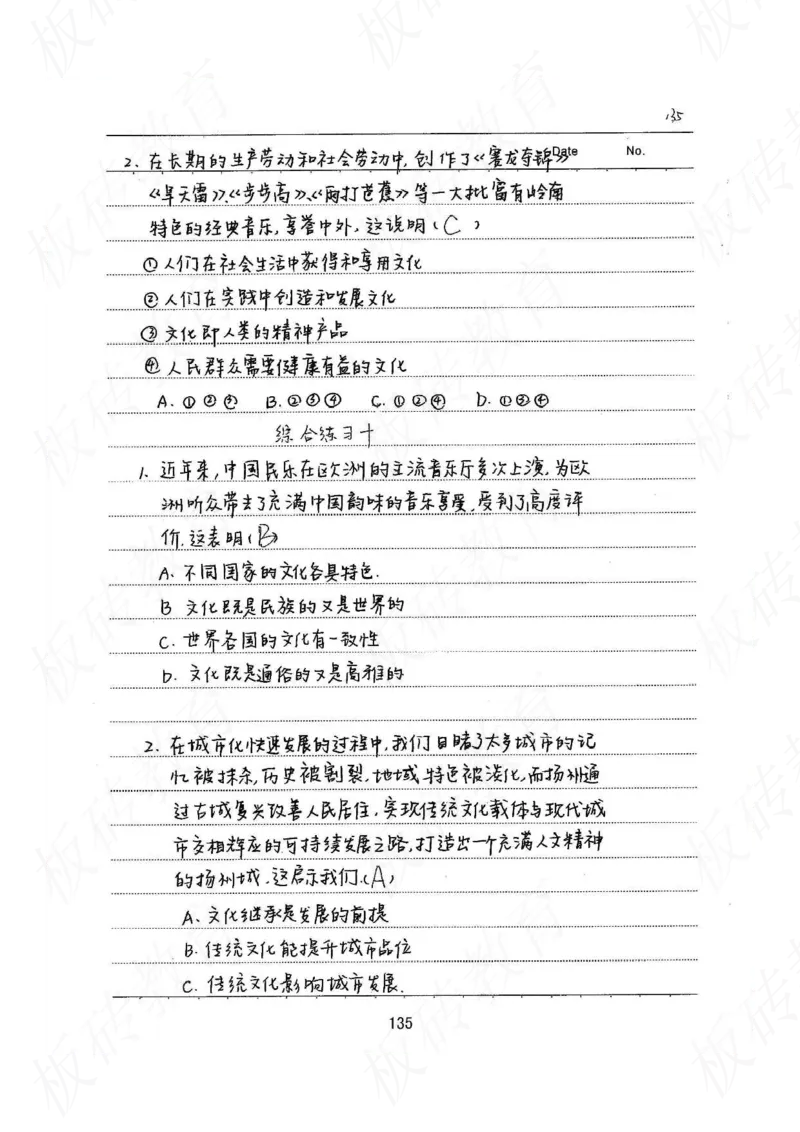 135
Date No.
2、在长期的生产劳动和社会劳动中,创作了《赛龙夺锦》
《旱天雷》《步步高》、《雨打芭蕉》等一大批富有岭南
特色的经典音乐,享誉中外。这说明(C)
①人们在社会生活中获得和享用文化
②人们在实践中创造和发展文化
③文化即人类的精神产品
④人民群众需要健康有益的文化
A.①②③ B.②③④ C.①②④ D.①③④
综合练习十
1. 近年来,中国民乐在欧洲的主流音乐厅多次上演,为欧
洲听众带去了充满中国韵味的音乐享受,受到了高度评
价.这表明(B)
A、不同国家的文化各具特色.
B 文化既是民族的又是世界的
C. 世界各国的文化有一致性
D. 文化既是通俗的又是高雅的
2、在城市化快速发展的过程中,我们目睹了太多城市的记
忆被抹杀,历史被割裂,地域特色被淡化,而扬州通
过古城复兴改善人民居住,实现传统文化载体与现代城
市交相辉应的可持续发展之路,打造出一个充满人文精神
的扬州城.这启示我们(A)
A、文化继承是发展的前提
B. 传统文化能提升城市品位
C. 传统文化影响城市发展.
135
板砖教育